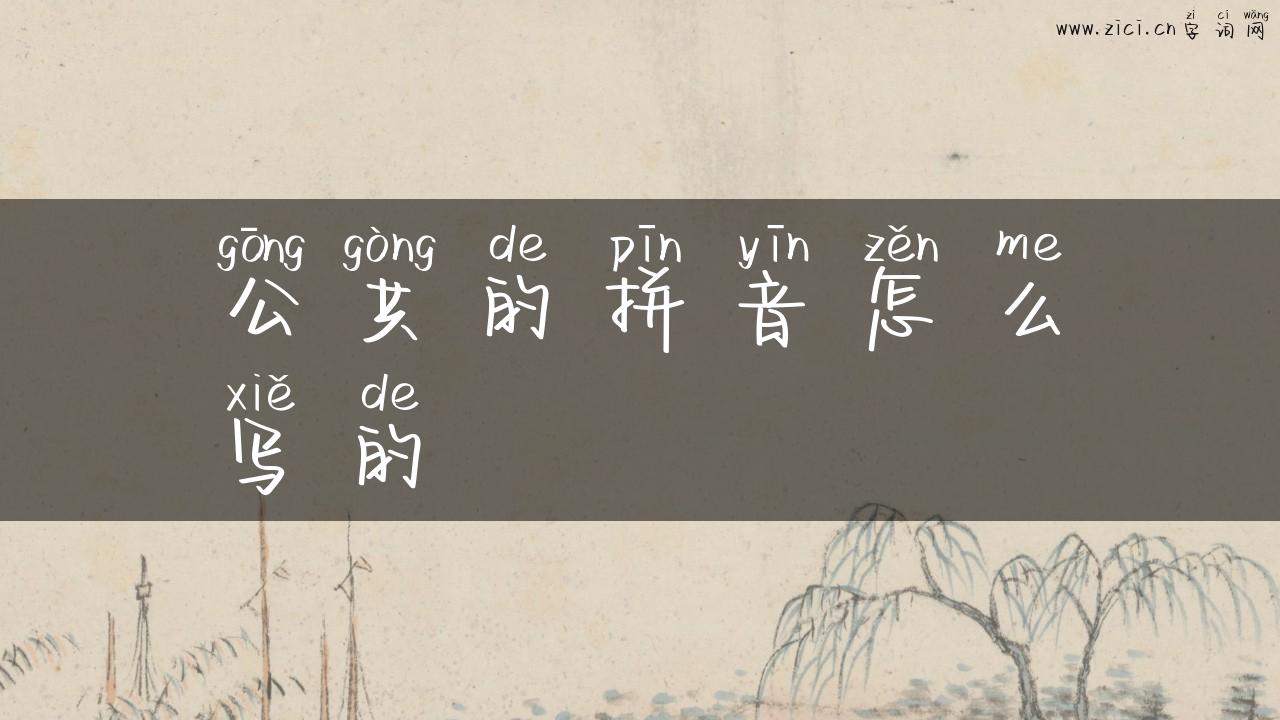 zì cí wǎng
www.zici.cn 字词网
gōng gòng de pīn yīn zěn me
公共的拼音怎么
xiě de
写的